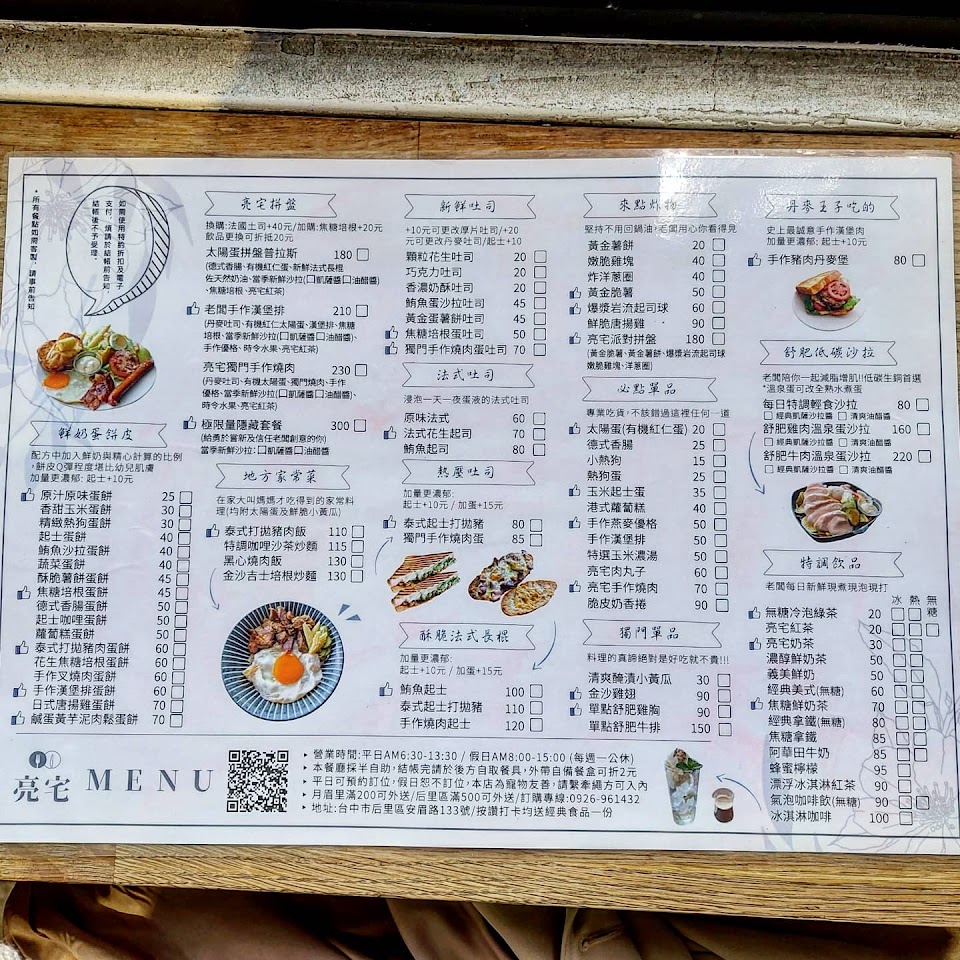 •所有餐點如需客製，請事前告知
如需使用特約折扣及電子
支付，煩請於結帳前告知，
結帳後不予受理。
鮮奶蛋餅皮
配方中加入鮮奶與精心計算的比例
,餅皮Q彈程度堪比幼兒肌膚
加量更濃郁: 起士+10元
原汁原味蛋餅 25
香甜玉米蛋餅 30
精緻熱狗蛋餅 30
起士蛋餅 40
鮪魚沙拉蛋餅 40
蔬菜蛋餅 40
酥脆薯餅蛋餅 45
焦糖培根蛋餅 45
德式香腸蛋餅 50
起士咖哩蛋餅 50
蘿蔔糕蛋餅 50
泰式打拋豬肉蛋餅 60
花生焦糖培根蛋餅 60
手作叉燒肉蛋餅 60
手作漢堡排蛋餅 60
日式唐揚雞蛋餅 70
鹹蛋黃芋泥肉鬆蛋餅 70
亮宅拼盤
換購:法國土司+40元/加購:焦糖培根+20元
飲品更換可折抵20元
太陽蛋拼盤普拉斯 180
(德式香腸、有機紅仁蛋、新鮮法式長棍
佐天然奶油、當季新鮮沙拉(口凱薩醬口油醋醬)
、焦糖培根、亮宅紅茶)
老闆手作漢堡排 210
(丹麥吐司、有機紅仁太陽蛋、漢堡排、焦糖
培根、當季新鮮沙拉(口凱薩醬口油醋醬)、
手作優格、時令水果、亮宅紅茶)
亮宅獨門手作燒肉 230
(丹麥吐司、有機太陽蛋、獨門燒肉、手作
優格、當季新鮮沙拉(口凱薩醬口油醋醬)、
時令水果、亮宅紅茶)
極限量隱藏套餐 300
(給勇於嘗新及信任老闆創意的你)
當季新鮮沙拉:口凱薩醬口油醋醬)
地方家常菜
在家大叫媽媽才吃得到的家常料
理(均附太陽蛋及鮮脆小黃瓜)
泰式打拋豬肉飯 110
特調咖哩沙茶炒麵 115
黑心燒肉飯 130
金沙吉士培根炒麵 130
新鮮吐司
+10元可更改厚片吐司/+20
元可更改丹麥吐司/起士+10
顆粒花生吐司 20
巧克力吐司 20
香濃奶酥吐司 20
鮪魚蛋沙拉吐司 45
黃金蛋薯餅吐司 45
焦糖培根蛋吐司 50
獨門手作燒肉蛋吐司 70
法式吐司
浸泡一天一夜蛋液的法式吐司
原味法式 60
法式花生起司 70
鮪魚起司 80
熱壓吐司
加量更濃郁:
起士+10元 / 加蛋+15元
泰式起士打拋豬 80
獨門手作燒肉蛋 85
酥脆法式長棍
加量更濃郁:
起士+10元 / 加蛋+15元
鮪魚起士 100
泰式起士打拋豬 110
手作燒肉起士 120
來點炸物
堅持不用回鍋油,老闆用心你看得見
黃金薯餅 20
嫩脆雞塊 40
炸洋蔥圈 40
黃金脆薯 50
爆漿岩流起司球 60
鮮脆唐揚雞 90
亮宅派對拼盤 180
(黃金脆薯、黃金薯餅、爆漿岩流起司球
嫩脆雞塊、洋蔥圈)
必點單品
專業吃貨,不該錯過這裡任何一道
太陽蛋(有機紅仁蛋) 20
德式香腸 25
小熱狗 15
熱狗蛋 25
玉米起士蛋 35
港式蘿蔔糕 40
手作燕麥優格 50
手作漢堡排 50
特選玉米濃湯 50
亮宅肉丸子 60
亮宅手作燒肉 70
脆皮奶香捲 90
獨門單品
料理的真諦絕對是好吃就不貴!!!
清爽醃漬小黃瓜 30
金沙雞翅 90
單點舒肥雞胸 90
單點舒肥牛排 150
丹麥王子吃的
史上最誠意手作漢堡肉
加量更濃郁: 起士+10元
手作豬肉丹麥堡 80
舒肥低碳沙拉
老闆陪你一起減脂增肌!!低碳生銅首選
*溫泉蛋可改全熟水煮蛋
每日特調輕食沙拉 80
口 經典凱薩沙拉醬 口 清爽油醋醬
舒肥雞肉溫泉蛋沙拉 160
口 經典凱薩沙拉醬 口 清爽油醋醬
舒肥牛肉溫泉蛋沙拉 220
口 經典凱薩沙拉醬 口 清爽油醋醬
特調飲品
老闆每日新鮮現煮現泡現打
冰 熱 無糖
無糖冷泡綠茶 20
亮宅紅茶 20
亮宅奶茶 30
濃醇鮮奶茶 50
義美鮮奶 50
經典美式(無糖) 60
焦糖鮮奶茶 70
經典拿鐵(無糖) 80
焦糖拿鐵 85
阿華田牛奶 85
蜂蜜檸檬 95
漂浮冰淇淋紅茶 90
氣泡咖啡飲(無糖) 90
冰淇淋咖啡 100
亮宅 MENU
營業時間:平日AM6:30-13:30 / 假日AM8:00-15:00 (每週一公休)
本餐廳採半自助,結帳完請於後方自取餐具,外帶自備餐盒可折2元
平日可預約訂位,假日恕不訂位,本店為寵物友善,請繫牽繩方可入內
月眉里滿200可外送/后里區滿500可外送/訂購專線:0926-961432
地址:台中市后里區安眉路133號/按讚打卡均送經典食品一份